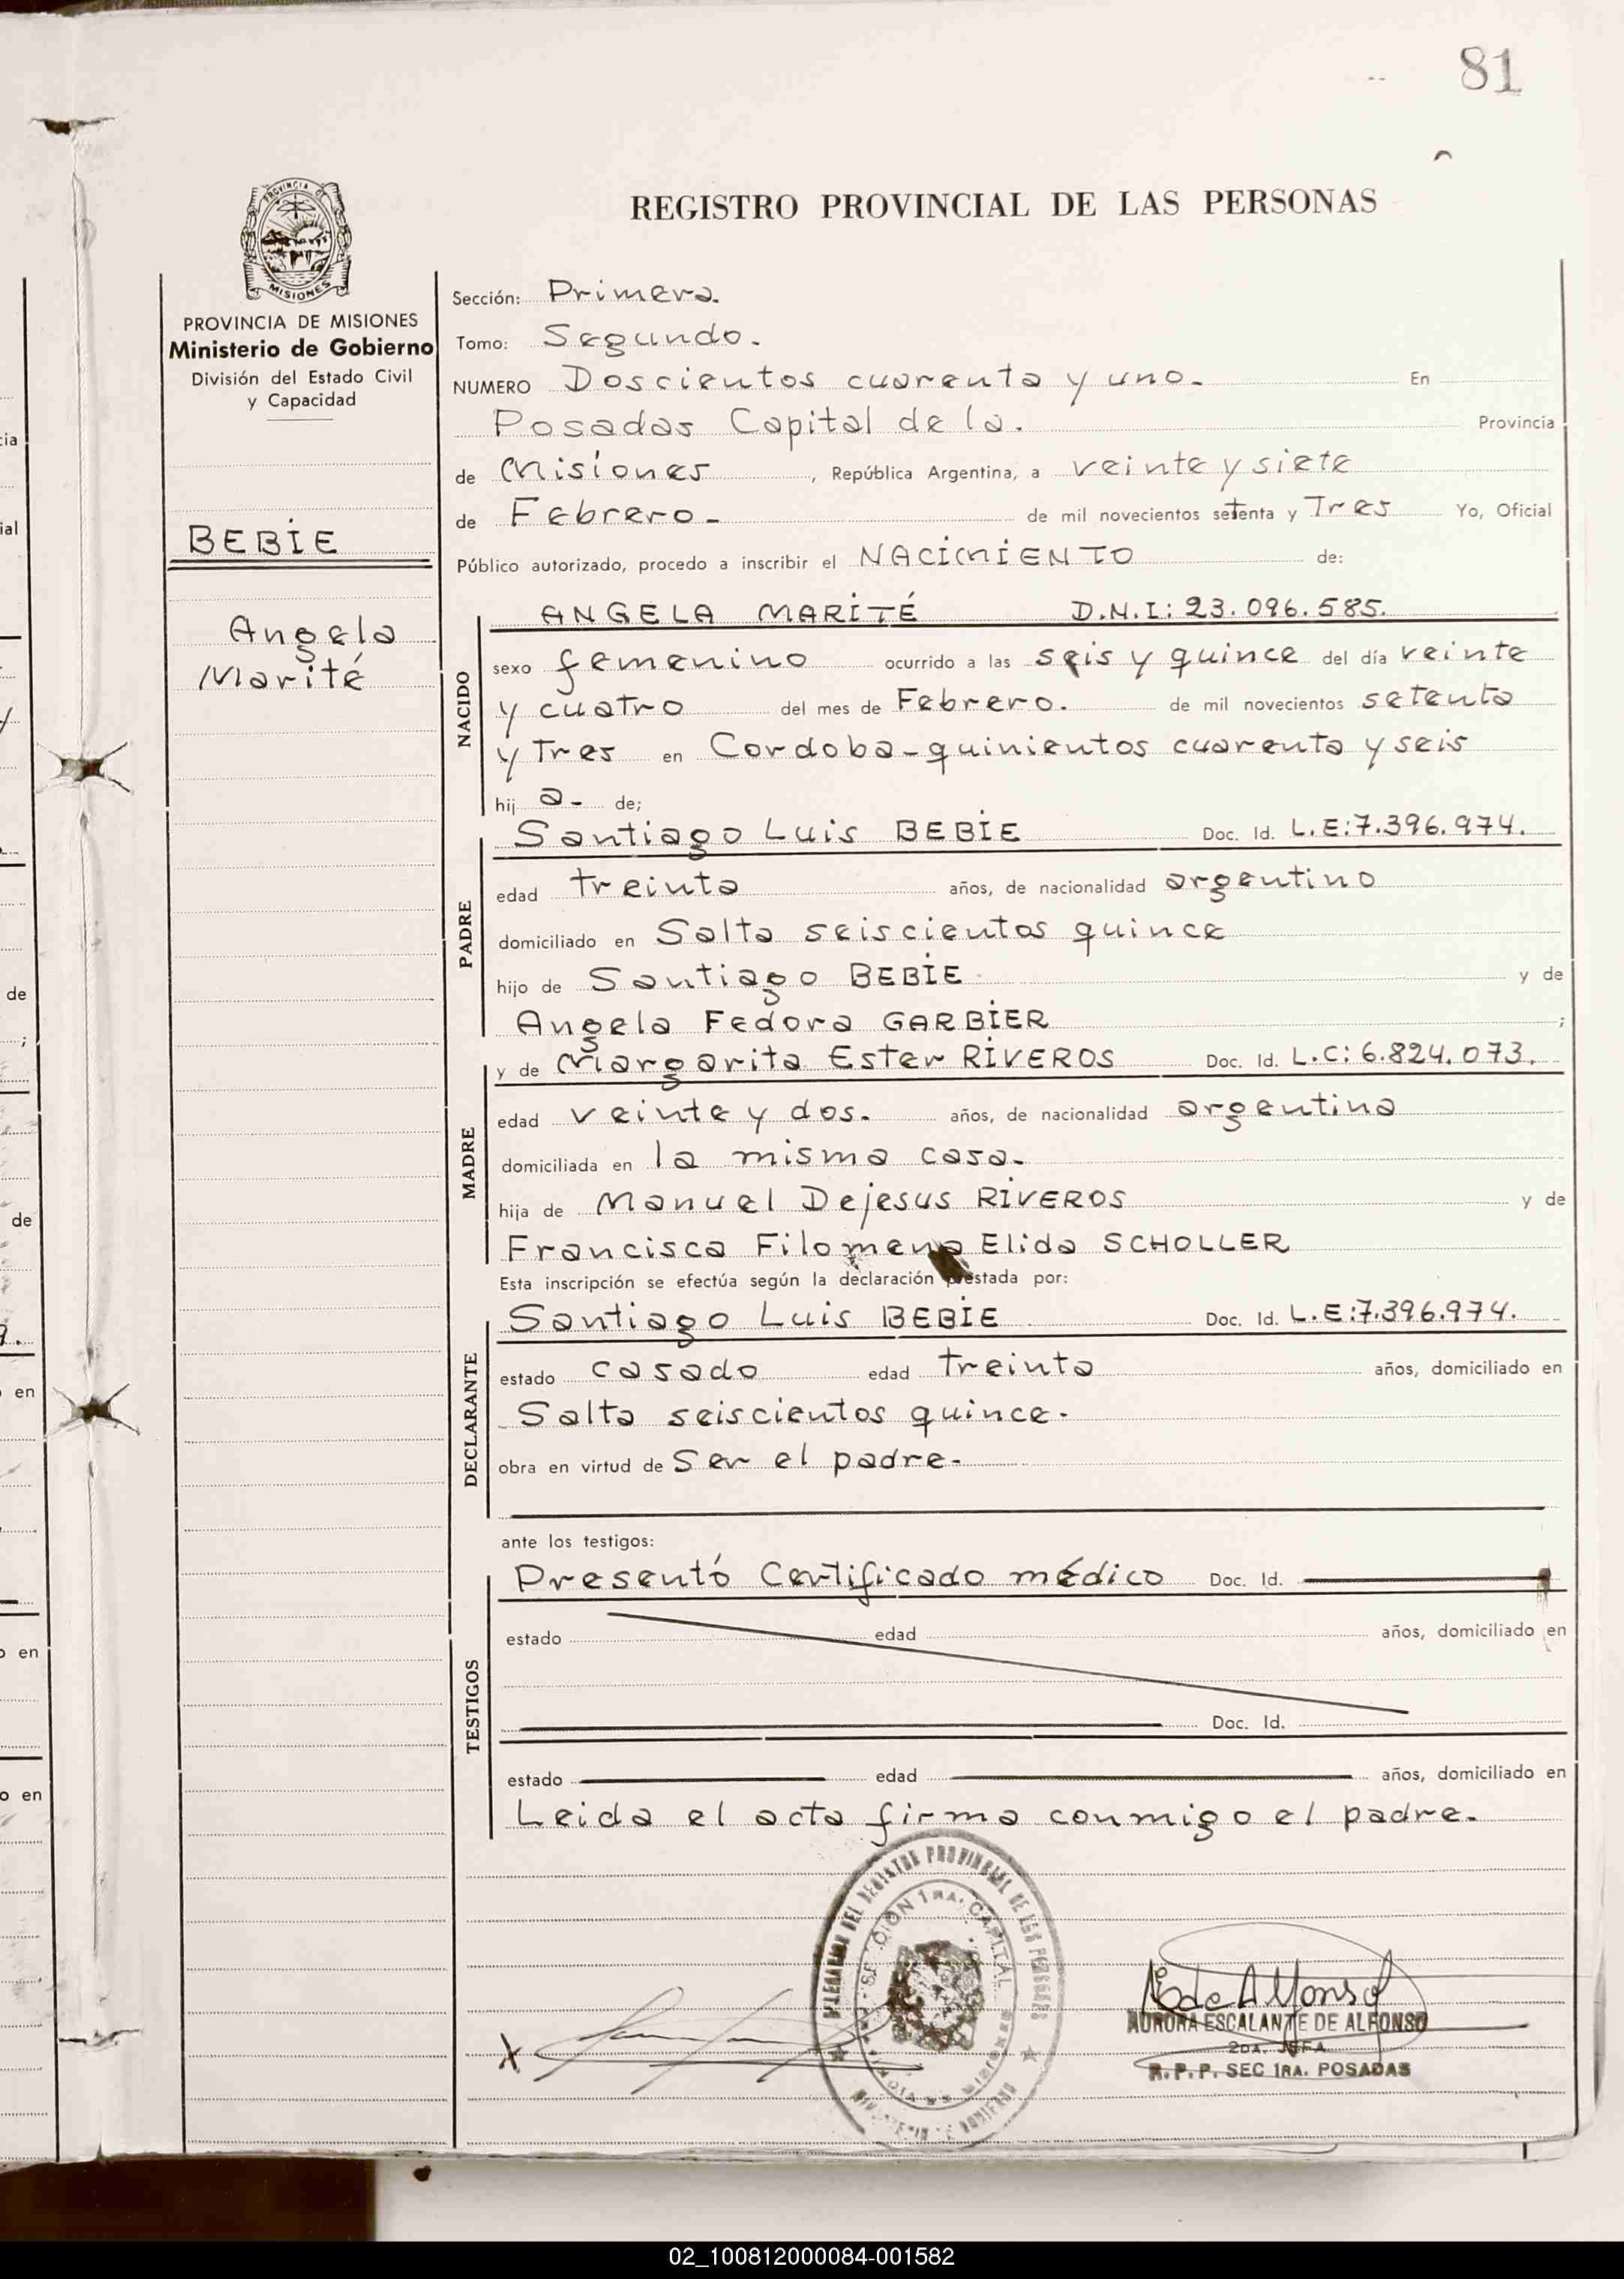 81
REGISTRO PROVINCIAL DE LAS PERSONAS
PROVINCIA DE
MISIONES
PROVINCIA DE MISIONES
Ministerio de Gobierno
División del Estado Civil
y Capacidad
BEBIE
Angela
Marité
Sección: Primera.
Tomo: Segundo.
NUMERO Doscientos cuarenta y uno. En
Posadas Capital de la. Provincia
de Misiones, República Argentina, a veinte y siete
de Febrero - de mil novecientos setenta y Tres Yo, Oficial
Público autorizado, procedo a inscribir el NACIMIENTO de:
NACIDO
ANGELA MARITÉ D.N.I: 23.096.585.
sexo femenino ocurrido a las seis y quince del día veinte
y cuatro del mes de Febrero. de mil novecientos setenta
y Tres en Cordoba - quinientos cuarenta y seis
hij a- de;
PADRE
Santiago Luis BEBIE Doc. Id. L.E:7.396.974.
edad treinta años, de nacionalidad argentino
domiciliado en Salta seiscientos quince
hijo de Santiago BEBIE y de
Angela Fedora GARBIER ;
MADRE
y de Margarita Ester RIVEROS Doc. Id. L.C: 6.824.073.
edad veinte y dos. años, de nacionalidad argentina
domiciliada en la misma casa.
hija de Manuel Dejesus RIVEROS y de
Francisca Filomena Elida SCHOLLER
Esta inscripción se efectúa según la declaración prestada por:
DECLARANTE
Santiago Luis BEBIE Doc. Id. L.E:7.396.974.
estado casado edad treinta años, domiciliado en
Salta seiscientos quince.
obra en virtud de Ser el padre.
ante los testigos:
TESTIGOS
Presentó Certificado médico Doc. Id.
estado edad años, domiciliado en
Doc. Id.
estado edad años, domiciliado en
Leida el acta firma conmigo el padre.
DEL REGISTRO PROVINCIAL DE LAS PERSONAS
1RA. CAPITAL
X
E de Alfonso
AURORA ESCALANTE DE ALFONSO
2DA. JEFA
R.P.P. SEC 1RA. POSADAS
02_100812000084-001582